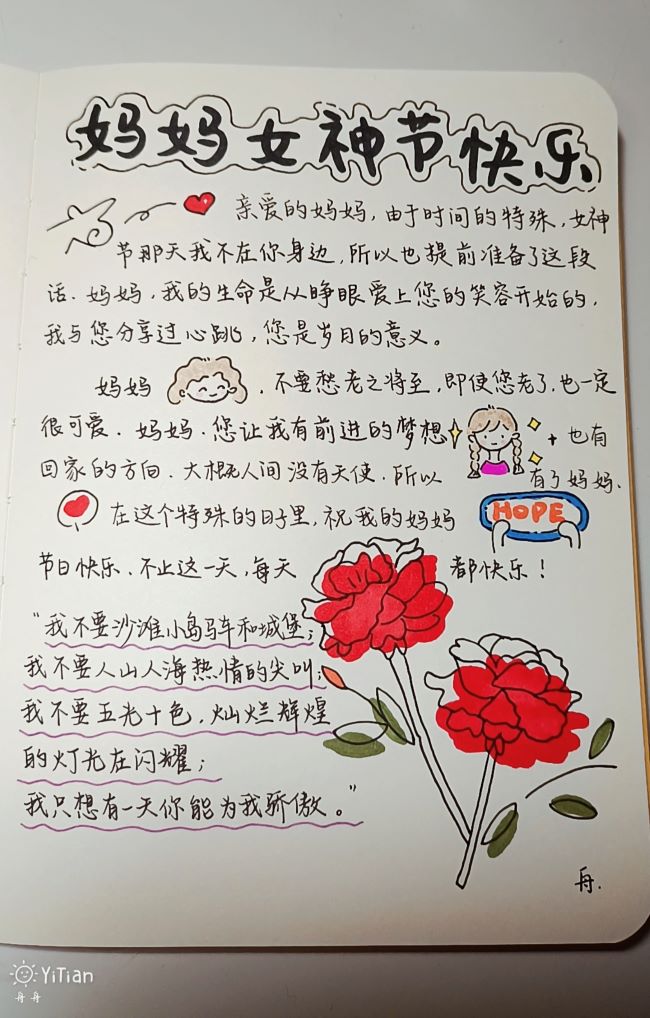 妈妈女神节快乐
亲爱的妈妈，由于时间的特殊，女神
节那天我不在你身边，所以也提前准备了这段
话．妈妈，我的生命是从睁眼爱上您的笑容开始的，
我与您分享过心跳，您是岁月的意义。
妈妈，不要愁老之将至，即使您老了．也一定
很可爱．妈妈．您让我有前进的梦想+也有
回家的方向．大概人间没有天使．所以有了妈妈．
在这个特殊的日子里，祝我的妈妈HOPE
节日快乐．不止这一天，每天都快乐！
“我不要沙滩小岛马车和城堡；
我不要人山人海热情的尖叫；
我不要五光十色，灿烂辉煌
的灯光在闪耀；
我只想有一天你能为我骄傲。”
舟．
YiTian
舟舟